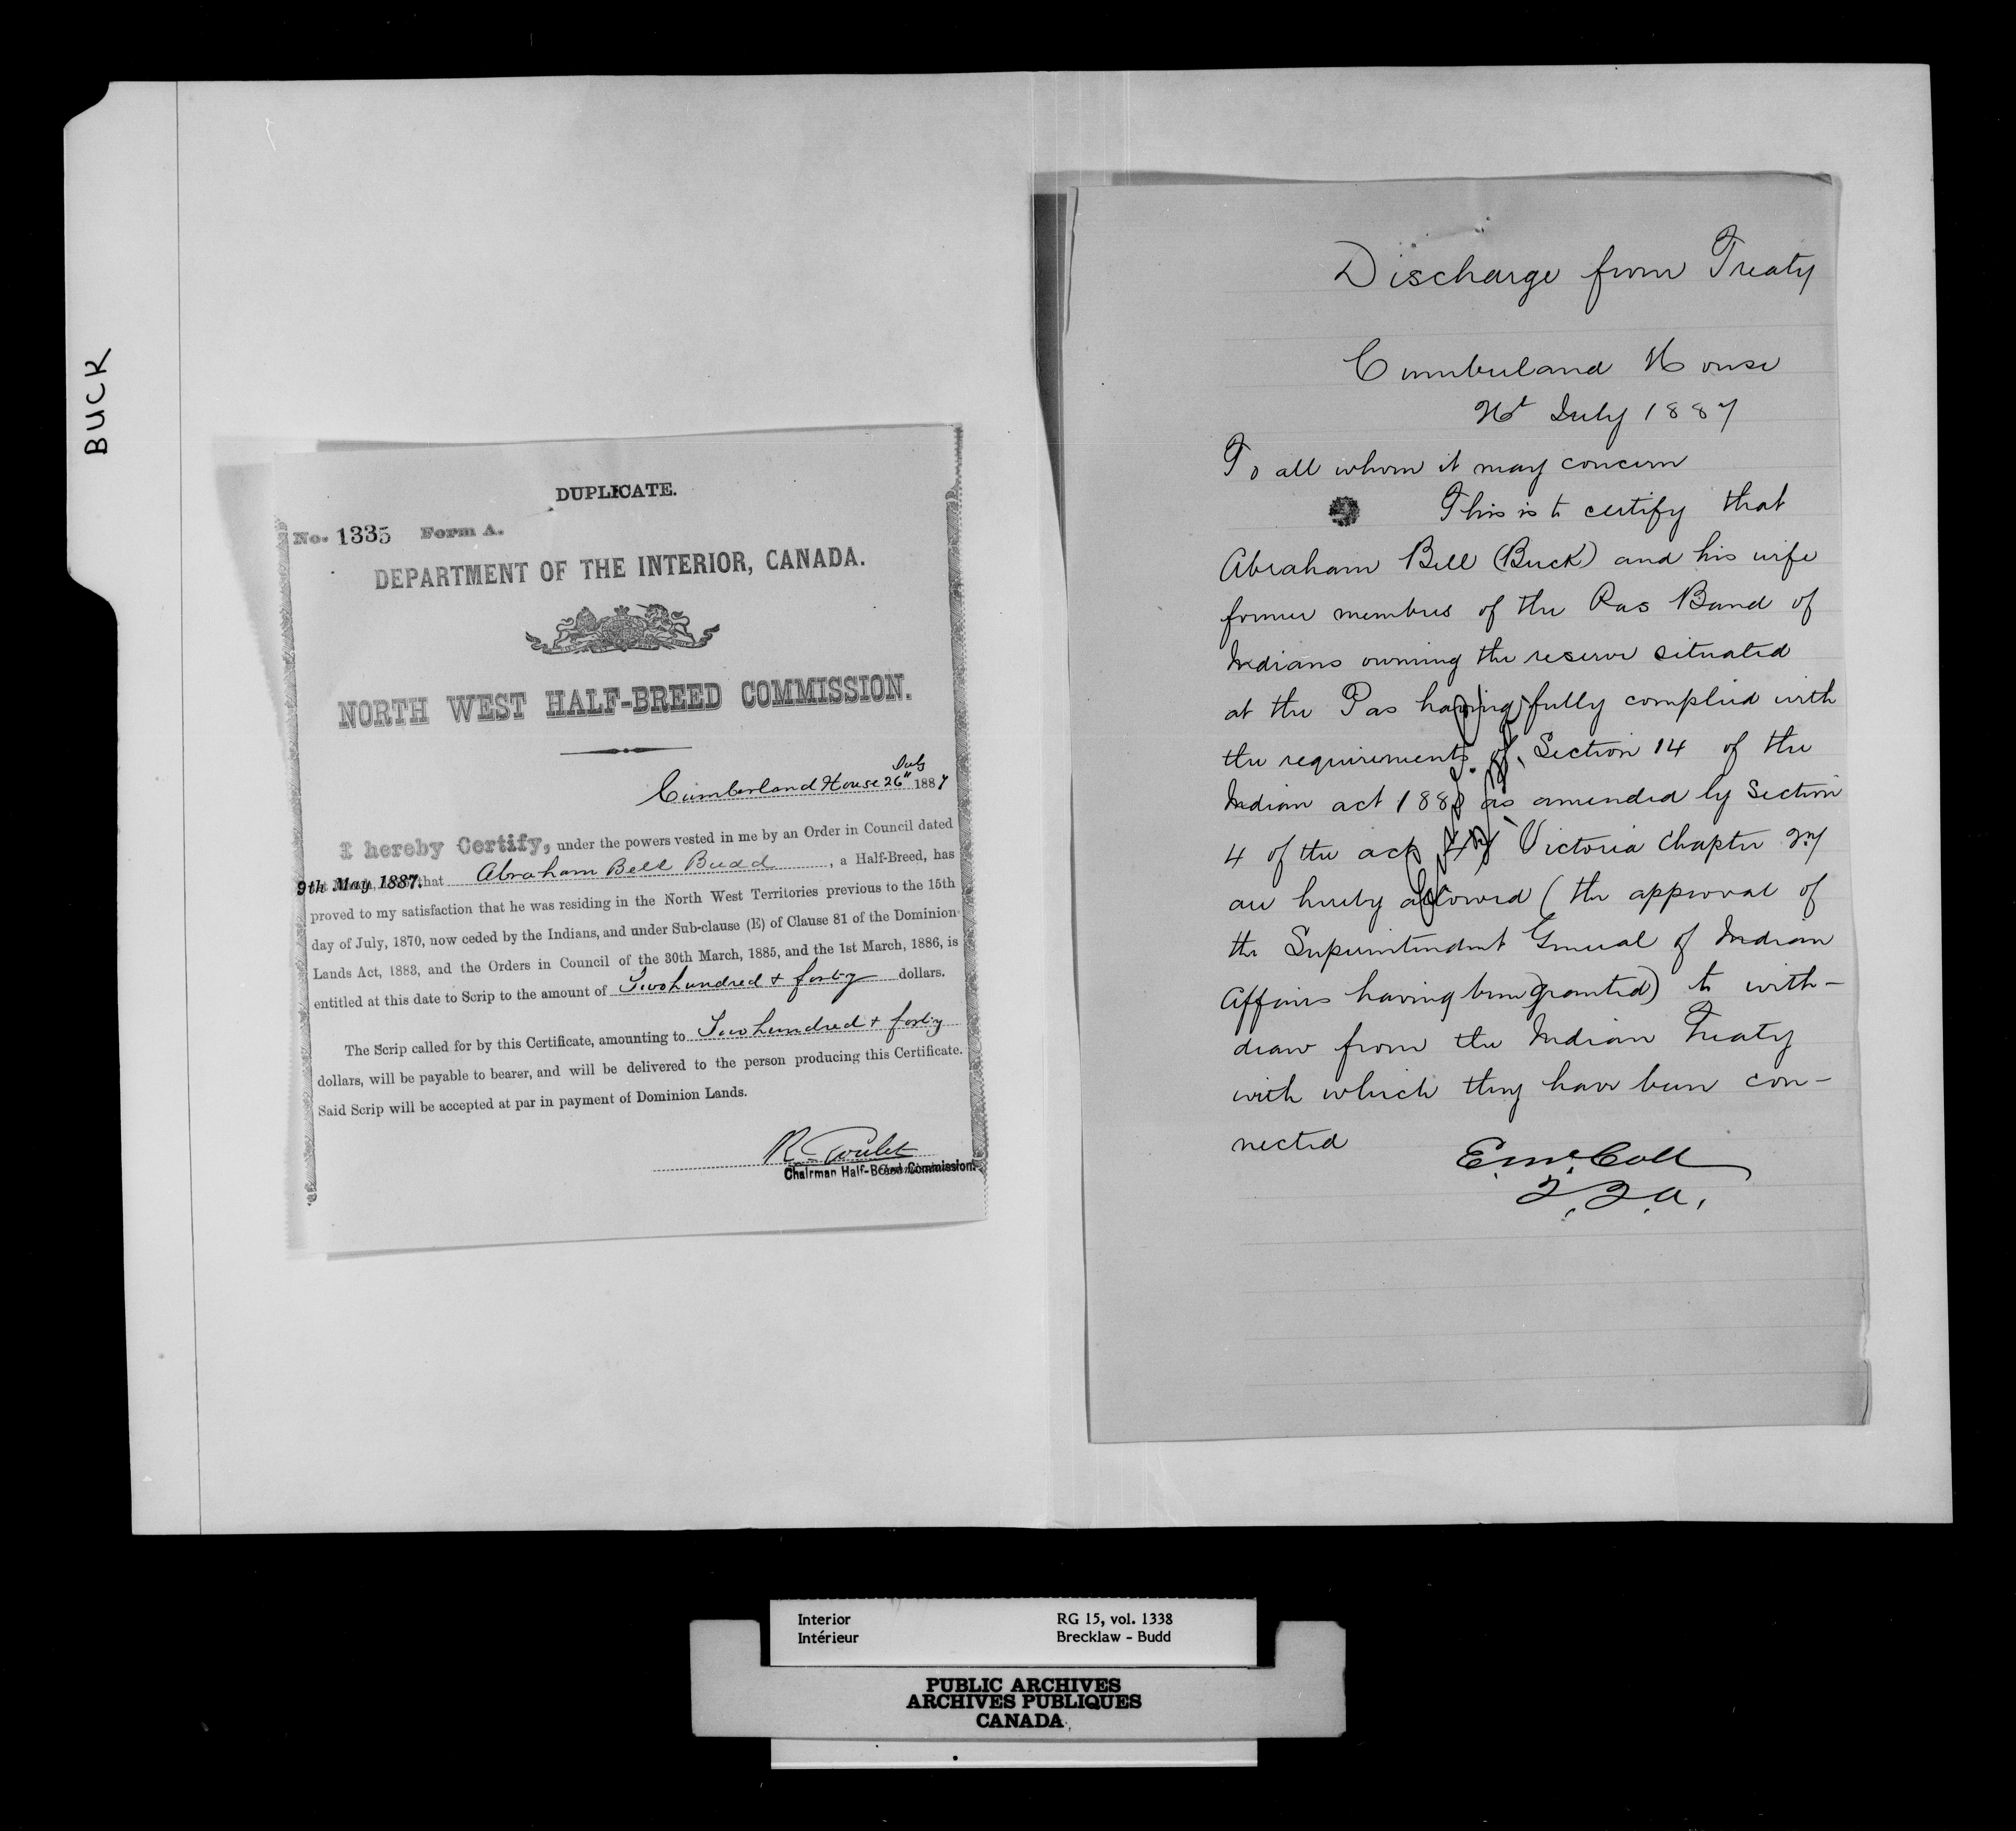 BUCK
DUPLICATE.
No. 1335 Form A.
DEPARTMENT OF THE INTERIOR, CANADA.
NORTH WEST HALF-BREED COMMISSION.
July
Cumberland House 26" 1887
I hereby Certify, under the powers vested in me by an Order in Council dated
9th May, 1887. that Abraham Bell Budd, a Half-Breed, has
proved to my satisfaction that he was residing in the North West Territories previous to the 15th
day of July, 1870, now ceded by the Indians, and under Sub-clause (E) of Clause 81 of the Dominion
Lands Act, 1883, and the Orders in Council of the 30th March, 1885, and the 1st March, 1886, is
entitled at this date to Scrip to the amount of Two hundred + forty dollars.
The Scrip called for by this Certificate, amounting to Two hundred + forty
dollars, will be payable to bearer, and will be delivered to the person producing this Certificate.
Said Scrip will be accepted at par in payment of Dominion Lands.
R. Goulet
Chairman Half-Breed Commission.
Discharge from Treaty
Cumberland House
July 1887
To all whom it may concern
This is to certify that
Abraham Bell (Buck) and his wife
former members of the Pas Band of
Indians owning the reserve situated
at the Pas having fully complied with
the requirements of Section 14 of the
Indian act 1880 as amended by Section
4 of the act 47 Victoria Chapter 27
are hereby allowed (the approval of
the Superintendent General of Indian
Affairs having been granted) to with-
draw from the Indian Treaty
with which they have been con-
nected
E. McColl
I. I. A.
Interior RG 15, vol. 1338
Intérieur Brecklaw - Budd
PUBLIC ARCHIVES
ARCHIVES PUBLIQUES
CANADA